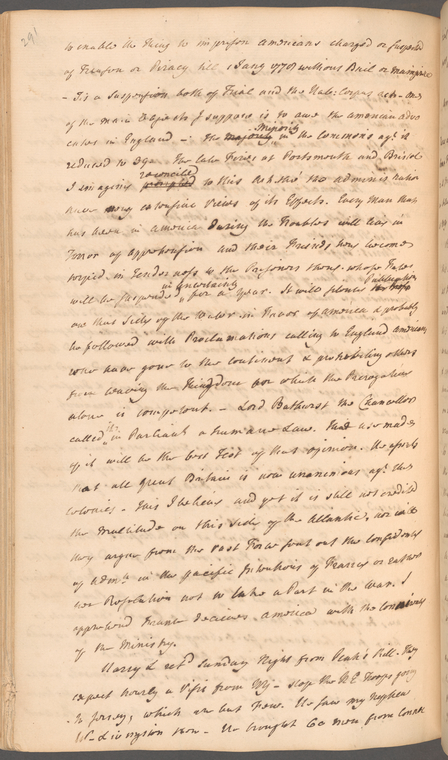 291
to enable the King to imprison Americans charged or suspected
of Treason or Piracy till 1 Jany 1778 without Bail or mainprize
- Tis a Suspension both of Trial and the Hab: Corpus act - One
of the main Objects I suppose is to awe the american advo
cates in England - The Minority in the Commons agt it
reduced to 39. The late Fires at Portsmouth and Bristol
I imagine reconciled to this Act the administration
have very extensive Views of its Effects. Every Man that
has been in america during the Troubles will live in
Terror of apprehension and their Friends here become
torpid in Tenderness to the Prisoners there whose Fates
will be suspended in uncertainty for a year. It will
on this Side of the Water in Favor of america & probably
be followed with Proclamations calling to England americans
who have gone to the Continent & prohibiting others
from leaving the Kingdom for which the Prerogative
alone is competent. - Lord Bathurst the Chancellor
called it in Parliamt a humane Law. The use made
of it will be the best Test of that opinion. He asserts
that all great Britain is now unanimous agt the
Colonies - This I believe and yet it is still not credited
the Multitude on this Side of the Atlantic, nor will
they argue from the vast Force sent out the Confidence
of Admn in the pacific Intentions of France or rather
her Resolution not to take a Part in the War. I
apprehend France deceives America with the Connivance
of the Ministry.
Harry L retd Sunday Night from Peak's Kill. They
expect hourly a Visit from - stop the N E Troops going
to Jersey, which are but few. He saw my Nephew
Wm Livingston there - He brought 60 men from Connec